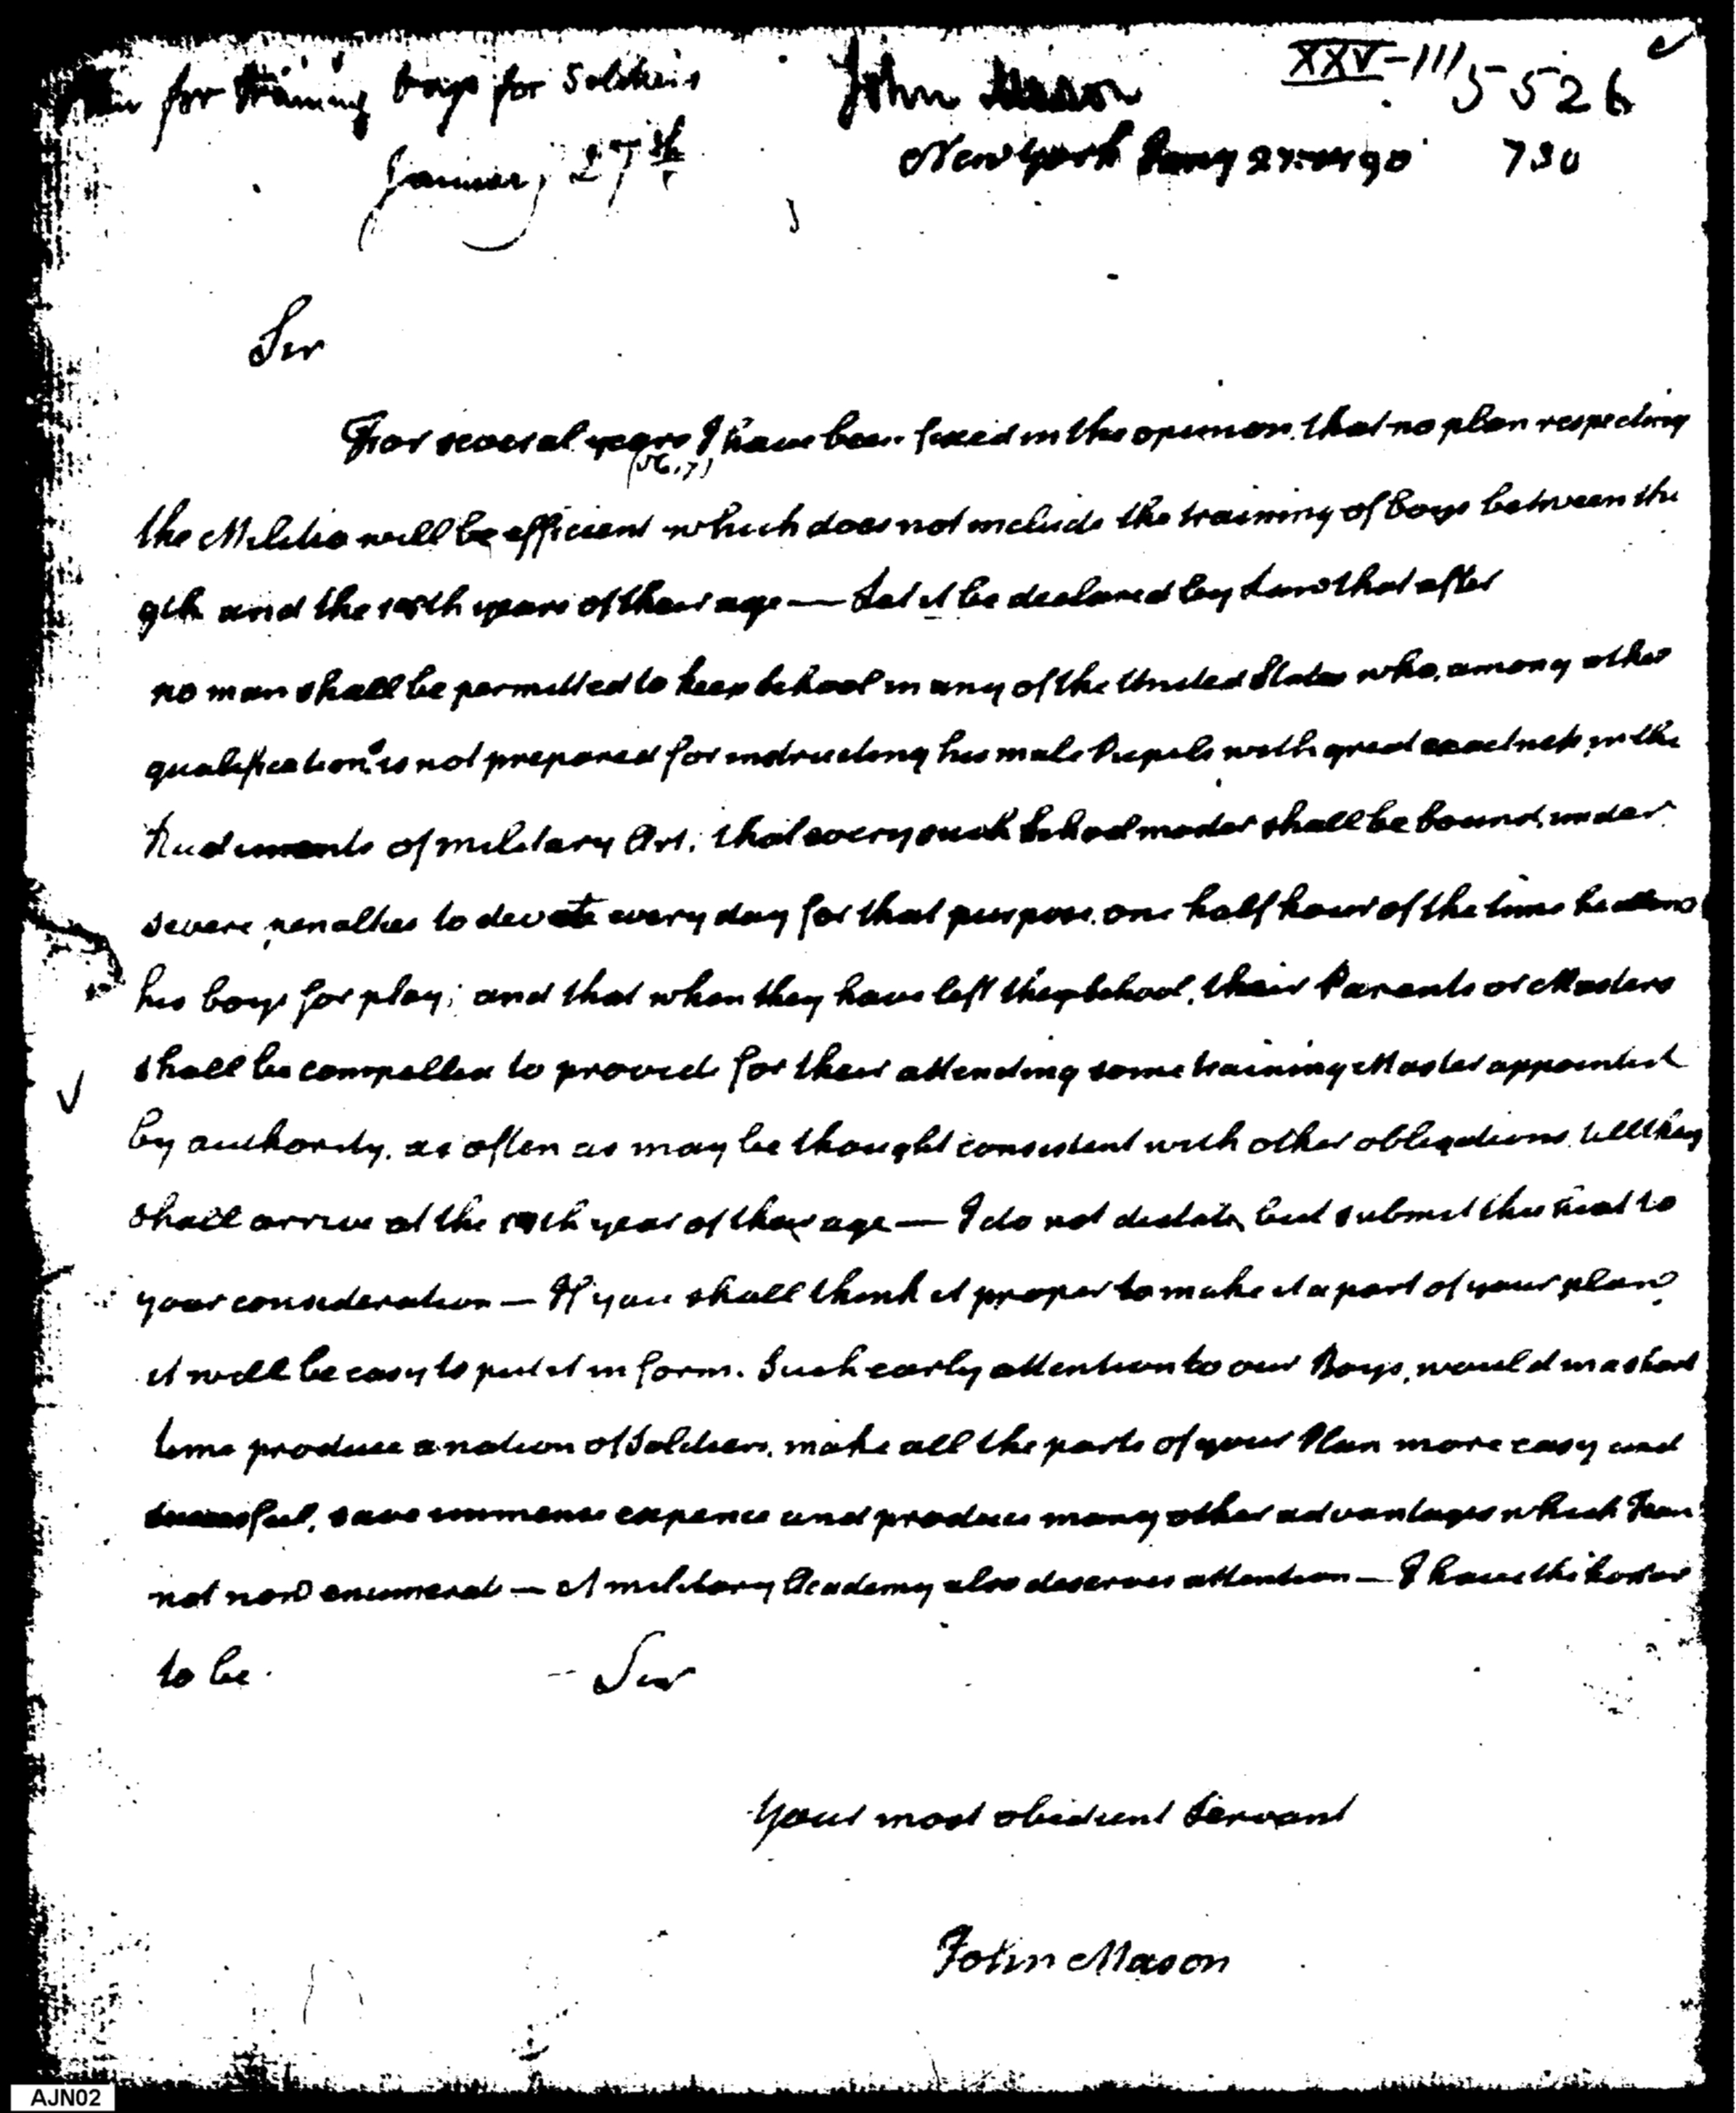 for training boys for Soldiers
John Mason
XXV-III 5526
January 27th
New York Jany 27: 1790
730
Sir
For several years I have been fixed in the opinion, that no plan respecting
the Militia will be efficient which does not include the training of Boys between the
9th and the years of their age — Let it be declared by Law that after
no man shall be permitted to keep School in any of the United States who, among other
qualifications is not prepared for instructing his male Pupils with great exactness, in the
Rudiments of military Art; that every such School master shall be bound, under
severe penalties to devote every day for that purpose, one half hour of the time he allows
his boys for play; and that when they have left School, their Parents or Masters
shall be compelled to provide for their attending some training Master appointed
by authority, as often as may be thought consistent with other obligations till they
shall arrive at the year of their age — I do not dictate, but submit this hint to
your consideration — If you shall think it proper to make it a part of your plan
it will be easy to put it in form. Such early attention to our Boys, would in a short
time produce a nation of Soldiers, make all the parts of your Plan more easy and
successful, save immense expence and produce many other advantages which I can
not now enumerate — A military Academy also deserves attention — I have the honor
to be
Sir
Your most obedient Servant
John Mason
AJN02